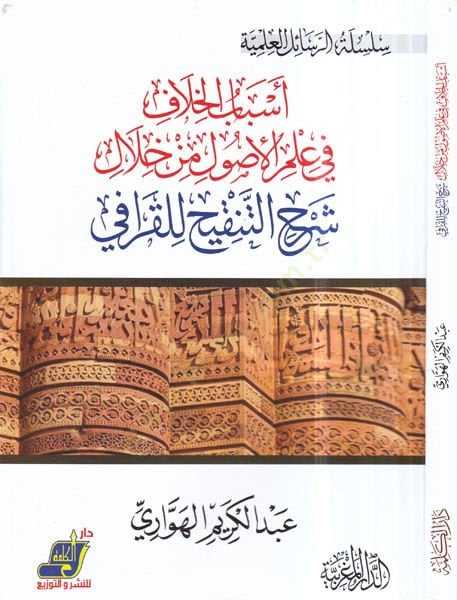 سلسلة الرسائل العلمية
أسباب الخلاف
في علم الأصول من خلال
شرح التنقيح للقرافي
عبد الكريم الهواري
الدار المغربية
دار
الكلمة
للنشر والتوزيع
أسباب الخلاف في علم الأصول من خلال شرح التنقيح للقرافي
عبد الكريم الهواري
دار الكلمة